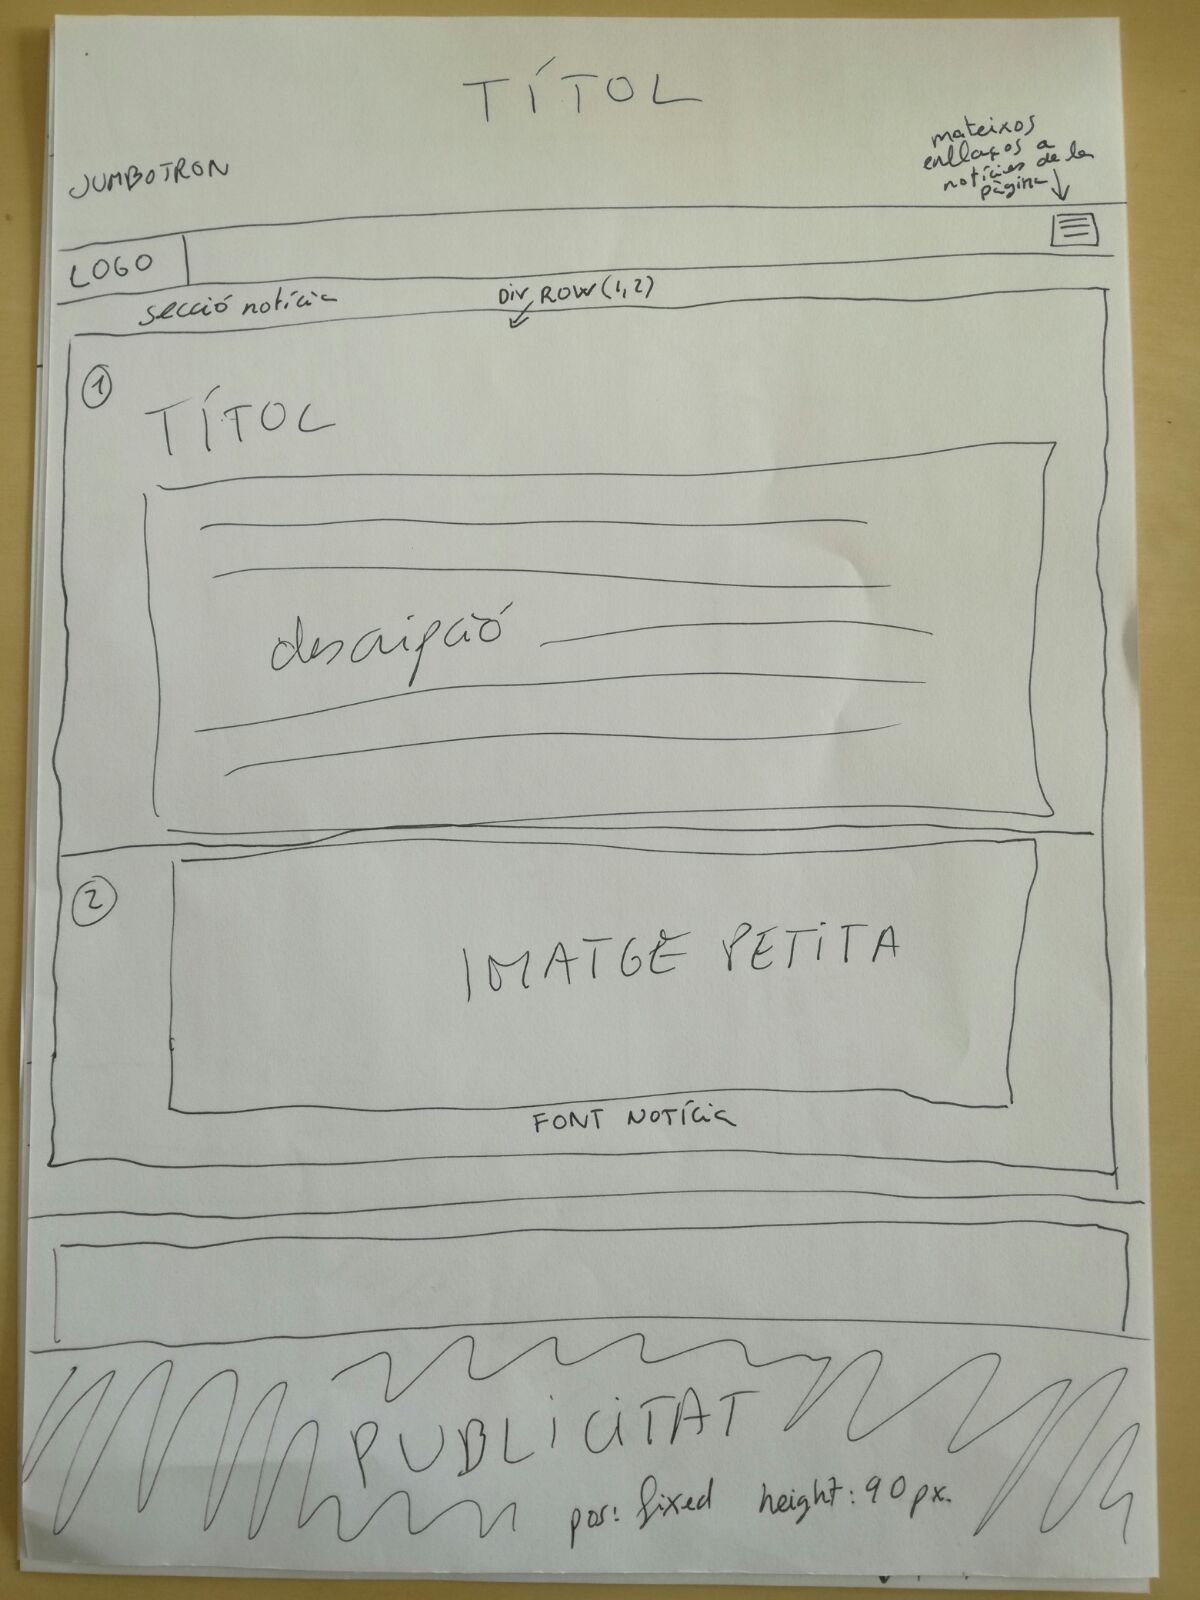 TÍTOL
JUMBOTRON
mateixos
enllaços a
notícies de la
pàgina
LOGO
secció notícia
Div ROW (1,2)
1
TÍTOL
descripció
2
IMATGE PETITA
FONT NOTÍCIA
PUBLICITAT
pos: fixed height: 90px.